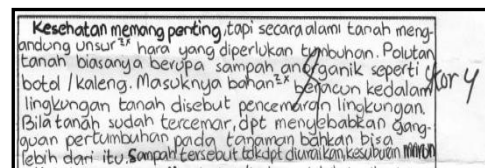 Kesehatan memang penting, tapi secara alami tanah meng-
andung unsur 2x hara yang diperlukan tumbuhan. Polutan
tanah biasanya berupa sampah anorganik seperti
botol / kaleng. Masuknya bahan 2x beracun kedalam
lingkungan tanah disebut pencemaran lingkungan
Bila tanah sudah tercemar, dpt menyebabkan gang-
guan pertumbuhan pada tanaman bahkan bisa
lebih dari itu. Sampah tersebut tak dpt diuraikan kesuburan
skor 4